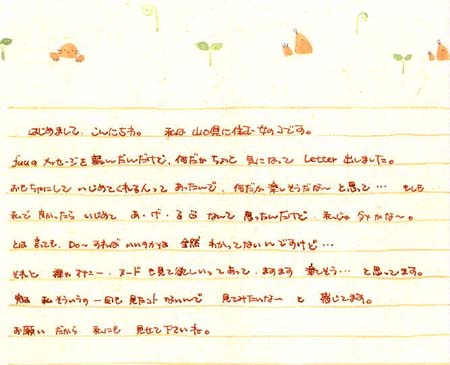 はじめまして、こんにちわ。 私は 山口県に住む 女のコです。
fuuのメッセージを 読んだんだけど、何だか ちょっと 気になって Letter 出しました。
おもちゃにして いじめてくれる人って あったんで、何だか 楽しそうだな〜 と思って… もしも
私で 良かったら いじめて あ・げ・る なんて 思ったんだけど、私じゃ ダメかな〜。
とは言っても、Do〜すれば いいのかは 全然 わかってないんですけど…
それと オナニー・ヌードも見て欲しいってあって、ますます 楽しそう… と思ってます。
私 そういうの 一回も 見たコト ないんで 見てみたいな〜 と 感じてます。
お願い だから 私にも 見せて下さいね。